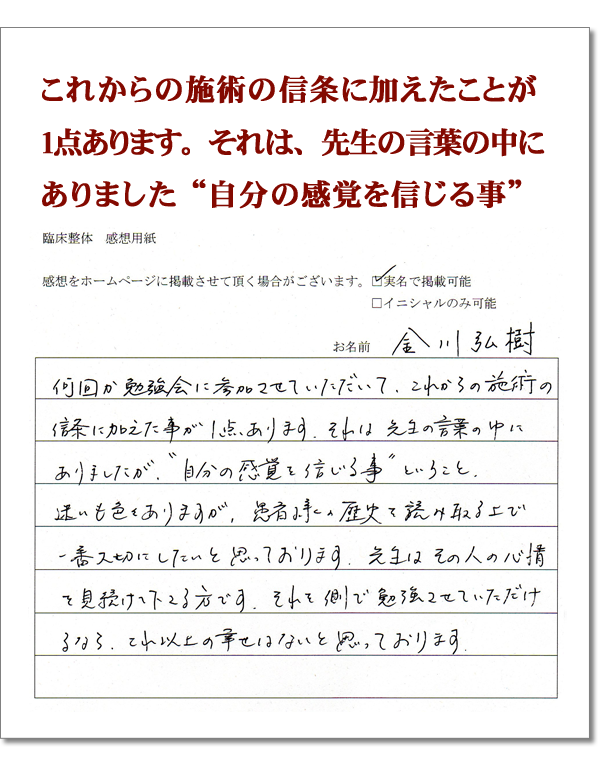 これからの施術の信条に加えたことが
1点あります。それは、先生の言葉の中に
ありました“自分の感覚を信じる事”
臨床整体　感想用紙
感想をホームページに掲載させて頂く場合がございます。☑実名で掲載可能
□イニシャルのみ可能
お名前　金川弘樹
何回か勉強会に参加させていただいて、これからの施術の
信条に加えた事が1点あります。それは先生の言葉の中に
ありましたが、“自分の感覚を信じる事”ということ。
迷いも色々ありますが、患者様の歴史を読み取る上で
一番大切にしたいと思っております。先生はその人の心情
を見抜けて下さる方です。それを側で勉強させていただけ
るなら、これ以上の幸せはないと思っております。